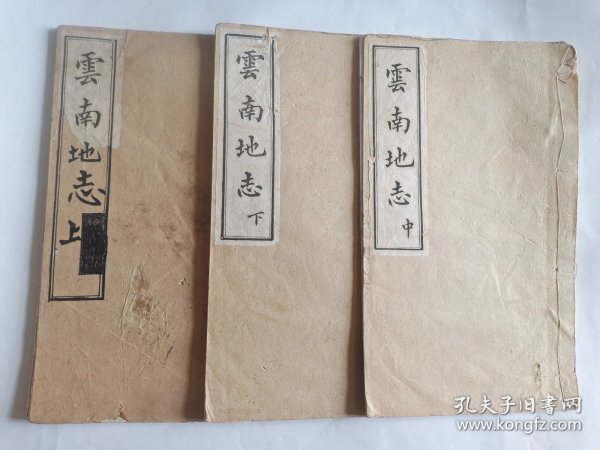 雲南地志上
雲南地志下
雲南地志中
孔夫子旧書网
www.kongfz.com